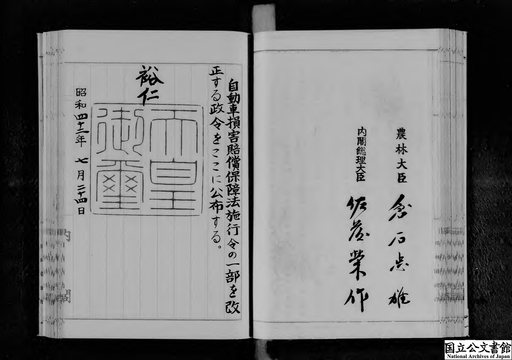 農林大臣
倉石忠雄
内閣総理大臣
佐藤榮作
自動車損害賠償保障法施行令の一部を改
正する政令をここに公布する。
裕仁
天皇
御璽
昭和四十二年七月二十四日
国立公文書館
National Archives of Japan